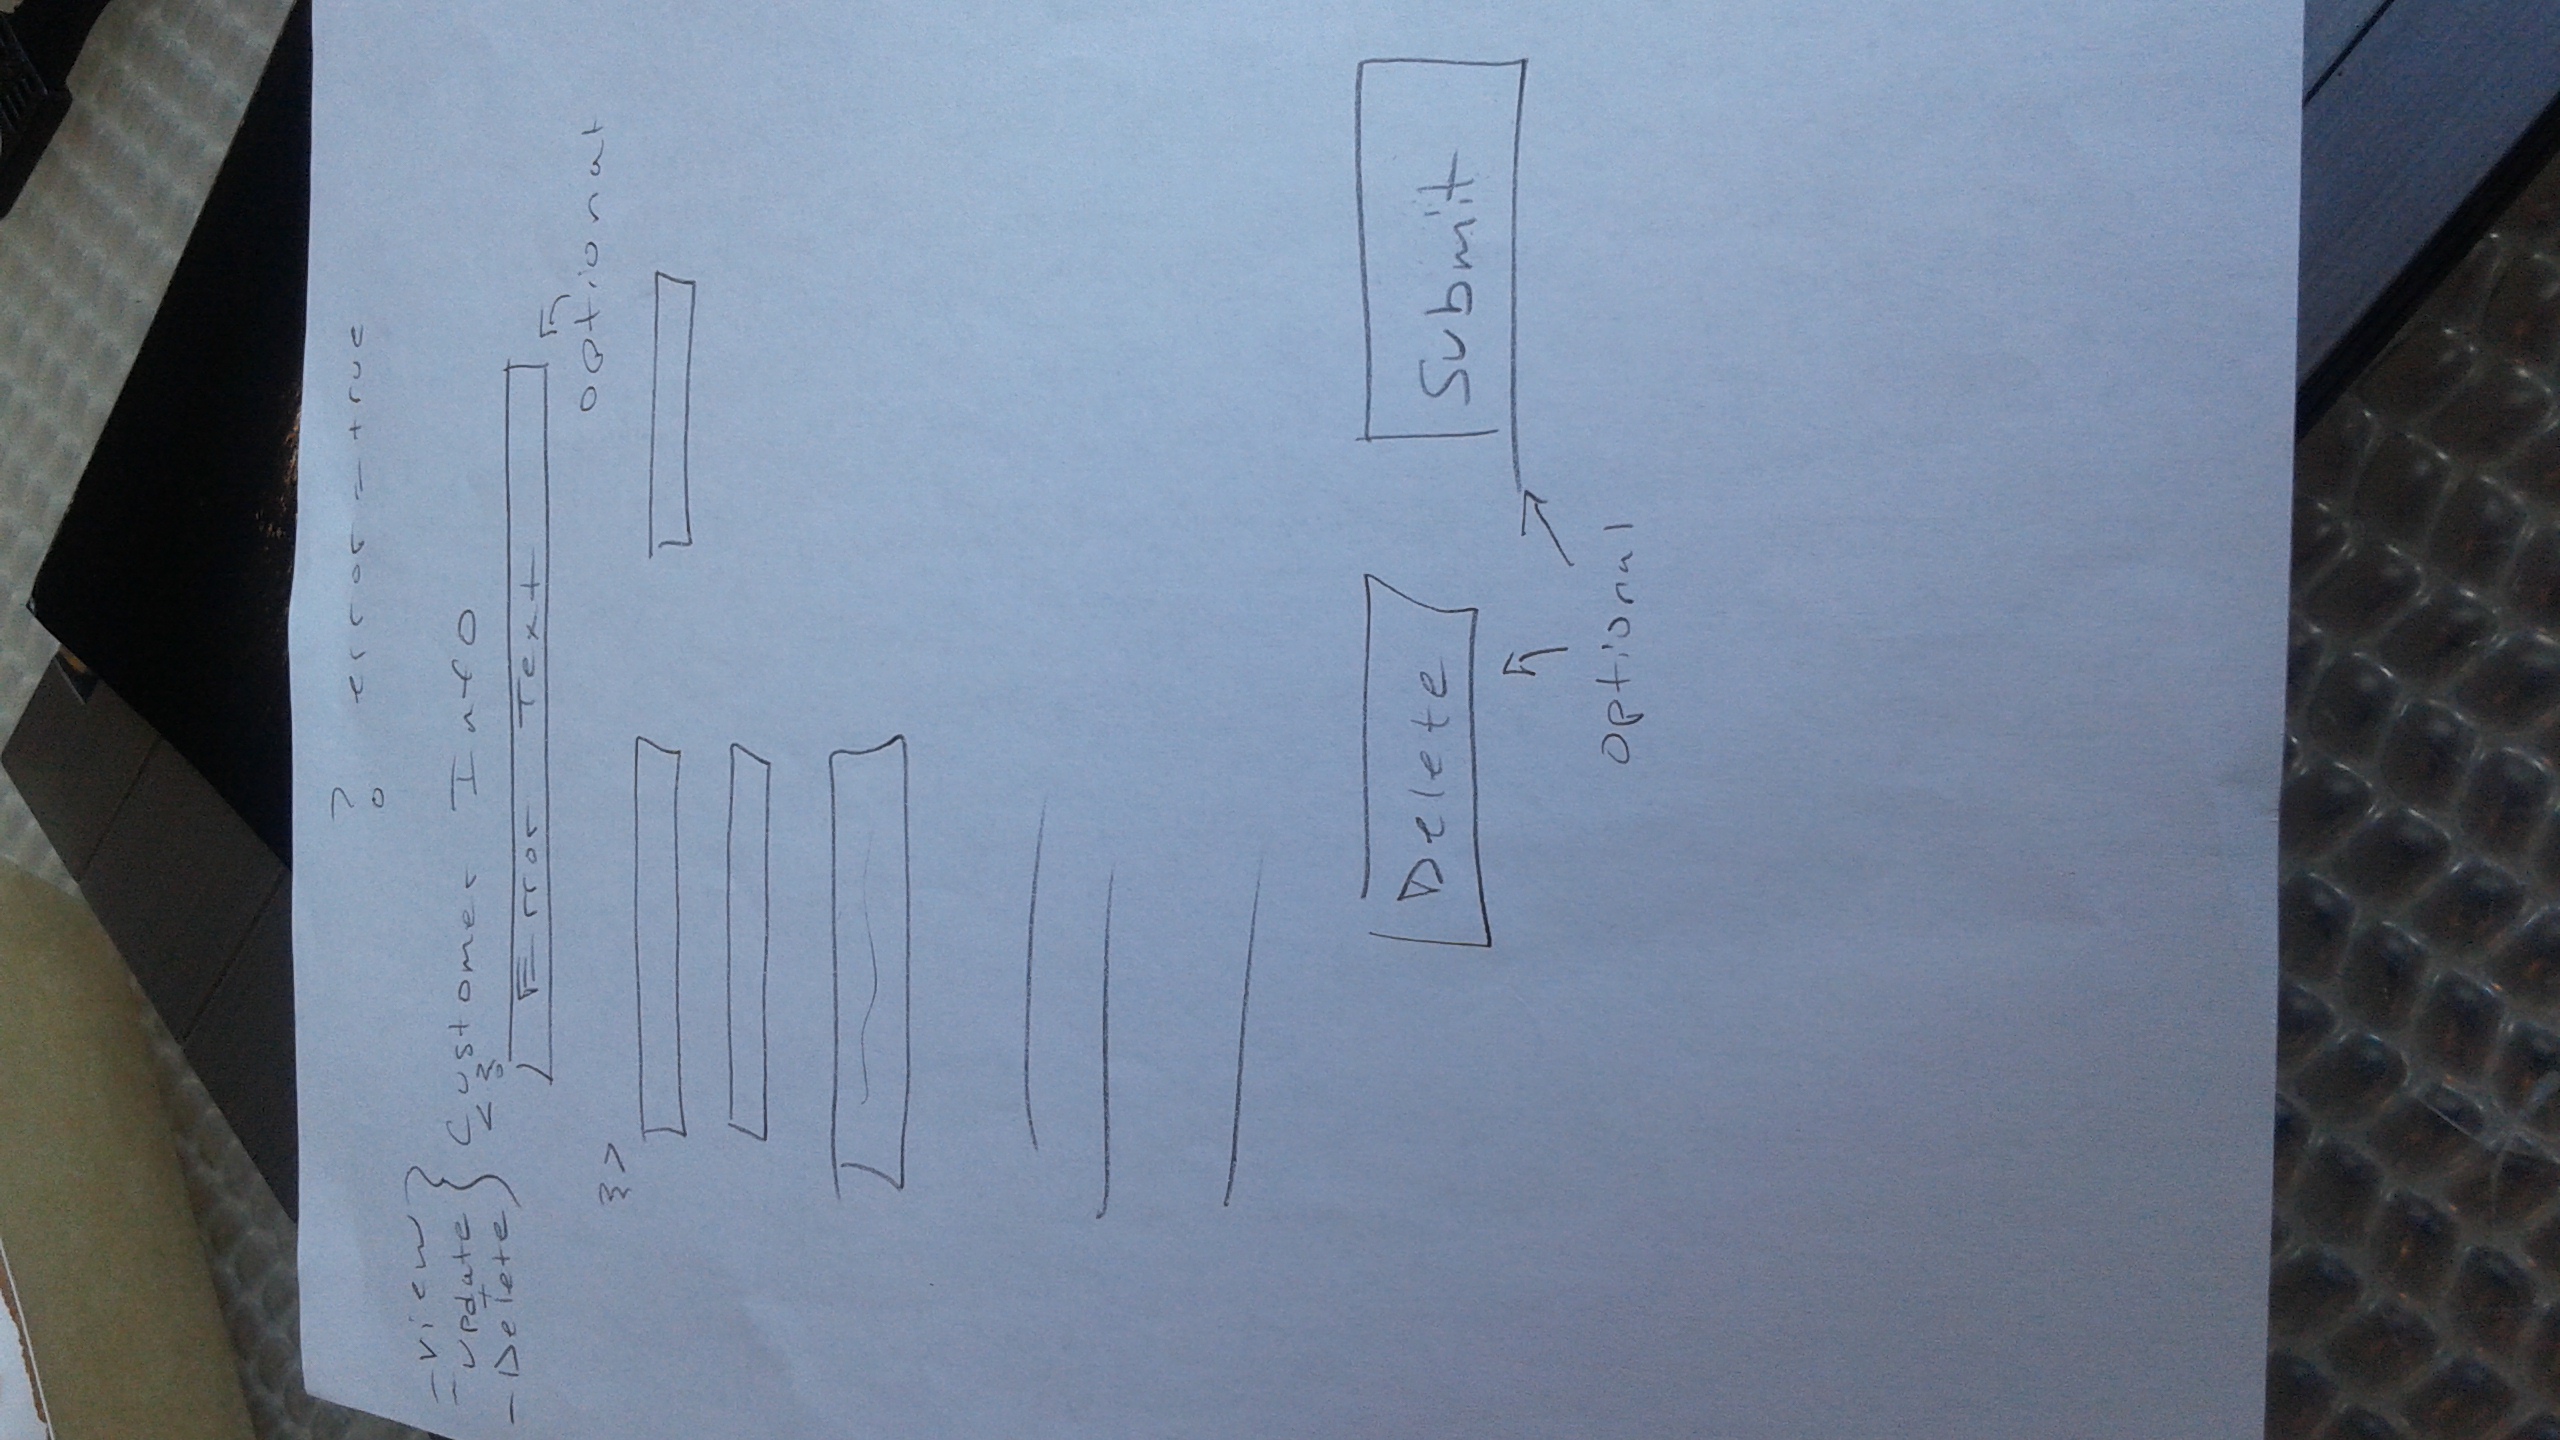 ? error=true
- view
- update
+
- Delete
} Customer Info
< {
Error Text
optional
} >
Delete
Submit
optional